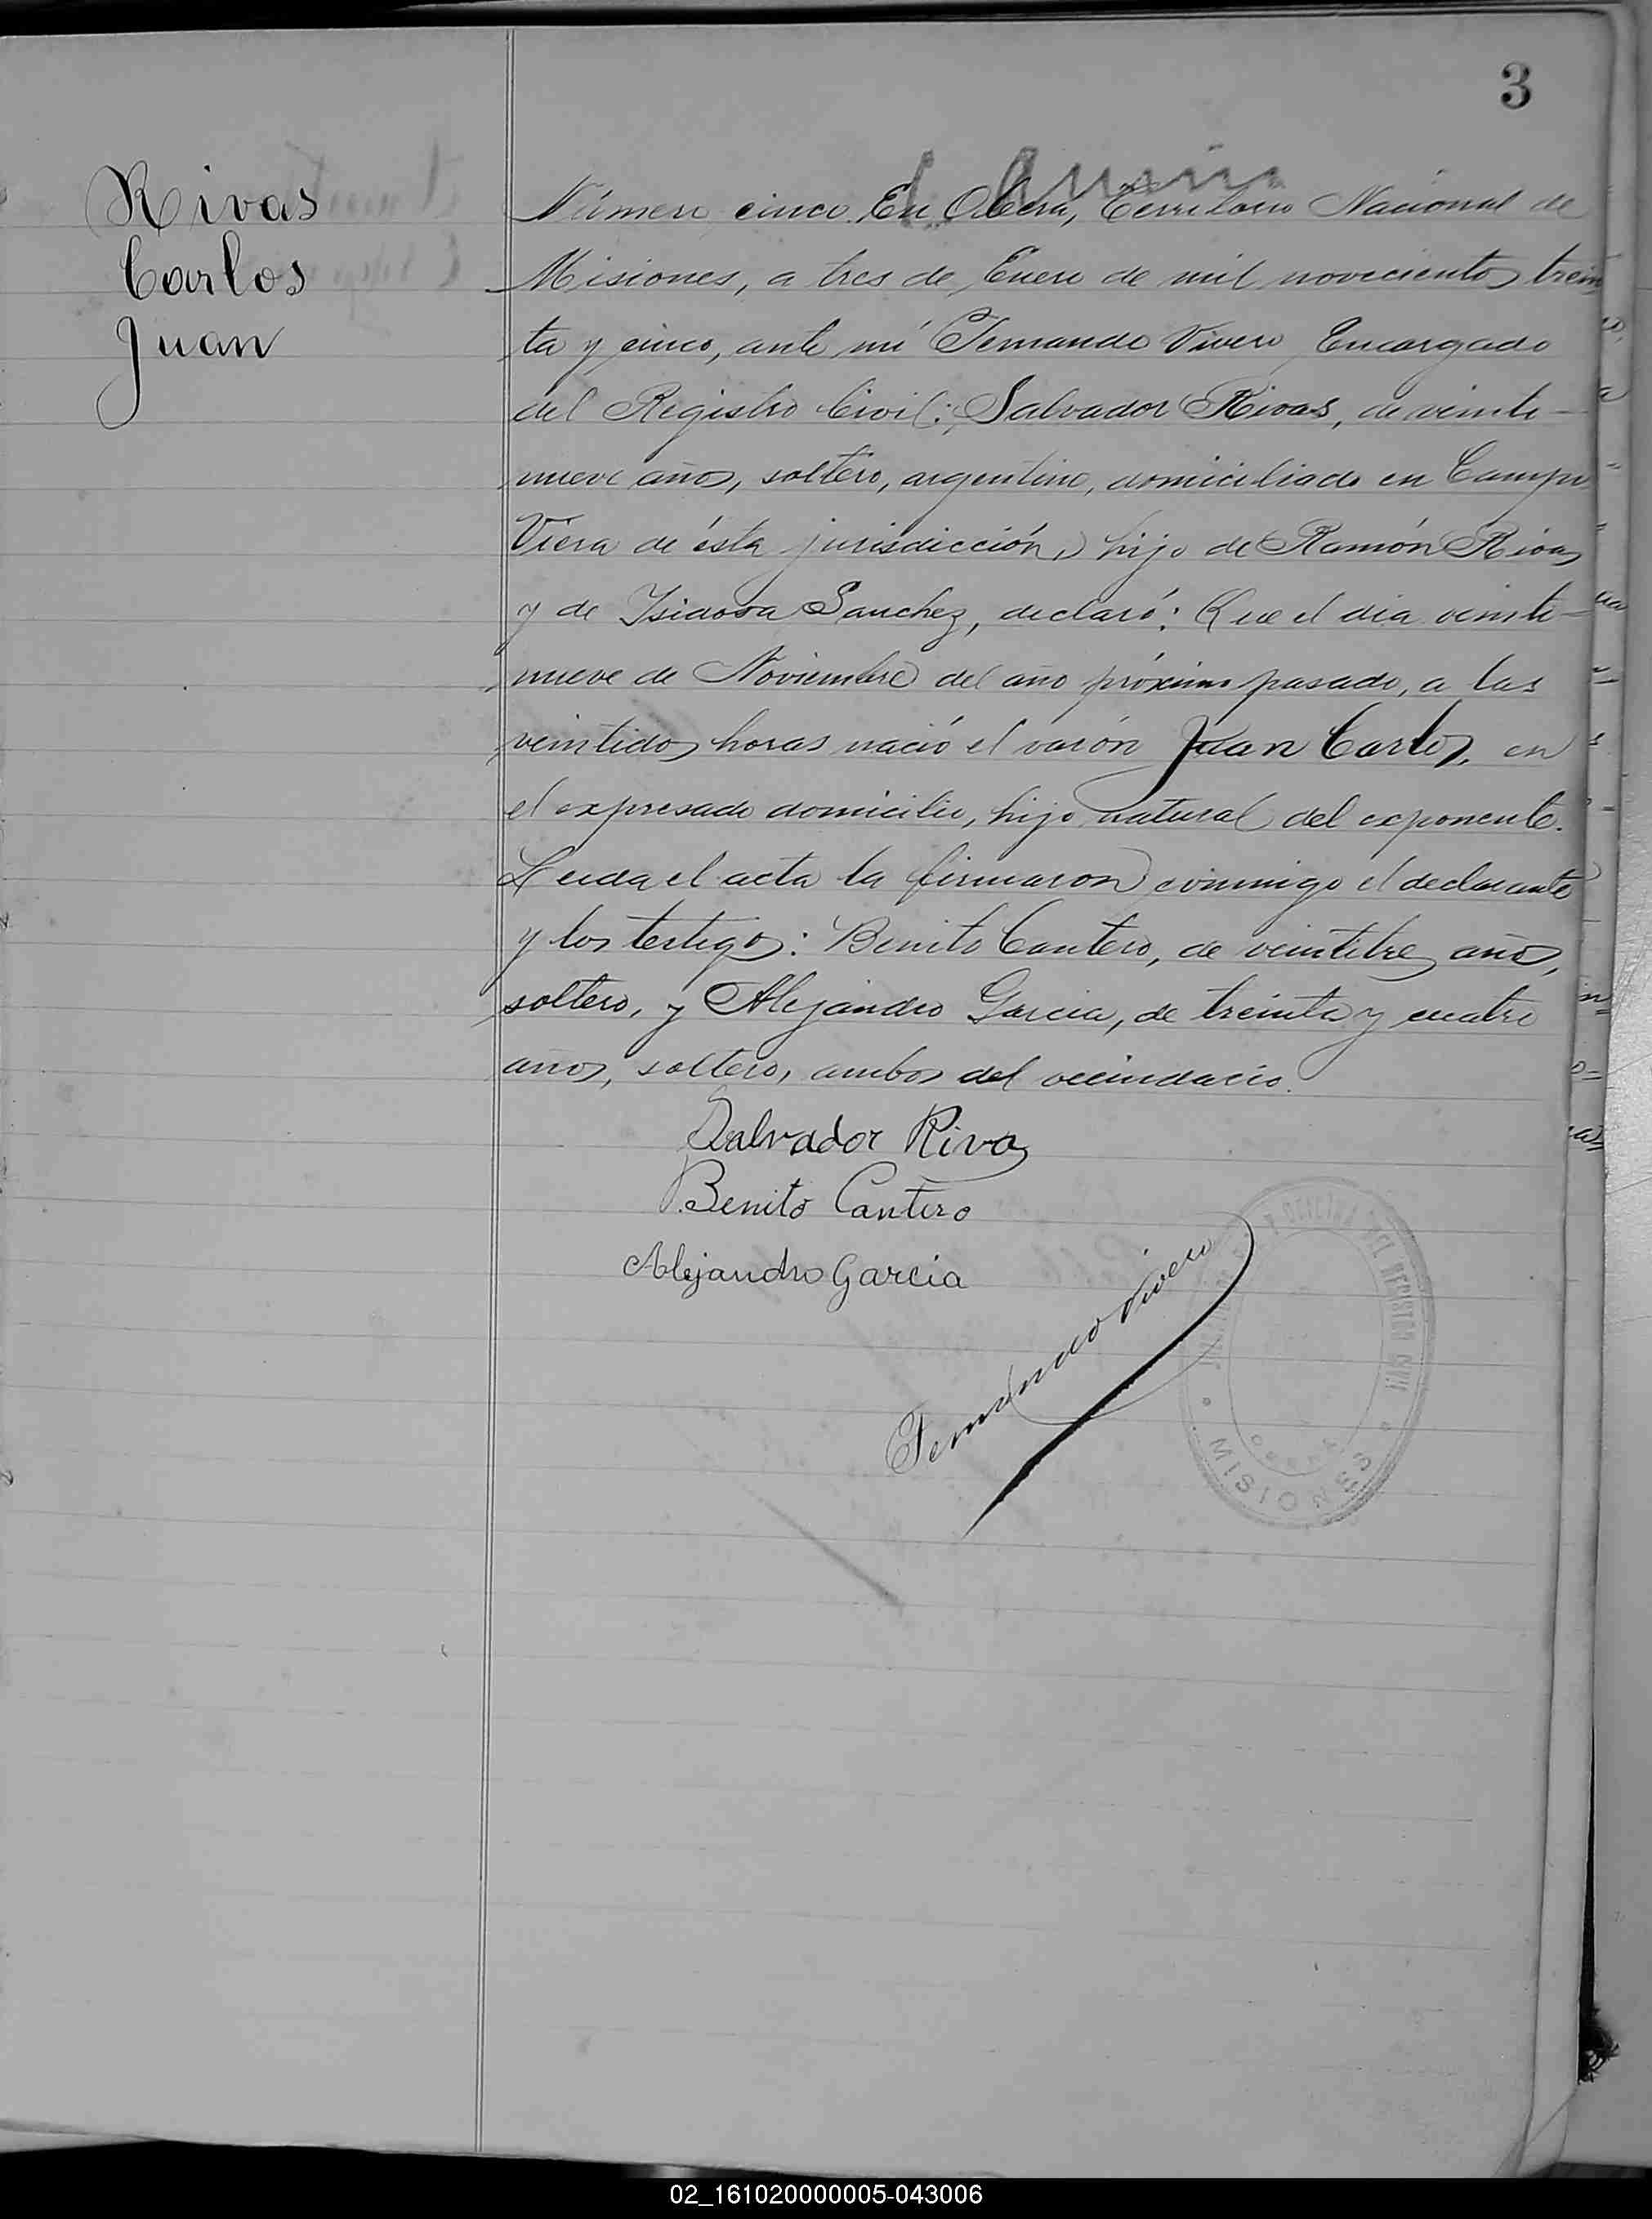 3
Rivas
Carlos
Juan
Número cinco. En Oberá, Territorio Nacional de
Misiones, a tres de Enero de mil novecientos trein
ta y cinco, ante mi Fernando Vivero Encargado
del Registro Civil: Salvador Rivas, de veinti-
nueve años, soltero, argentino, domiciliado en Campo
Viera de ésta jurisdicción, hijo de Ramón Rivas
y de Isidora Sanchez, declaró: Que el dia veinti-
nueve de Noviembre del año próximo pasado, a las
veintidos horas nació el varón Juan Carlos, en
el expresado domicilio, hijo natural del exponente.
Leida el acta la firmaron conmigo el declarante
y los testigos: Benito Cantero, de veintitres años,
soltero, y Alejandro Garcia, de treinta y cuatro
años, soltero, ambos del vecindario.
Salvador Rivas
Benito Cantero
Alejandro Garcia
Fernando Vivero
OFICINA DEL REGISTRO CIVIL
MISIONES
02_161020000005-043006